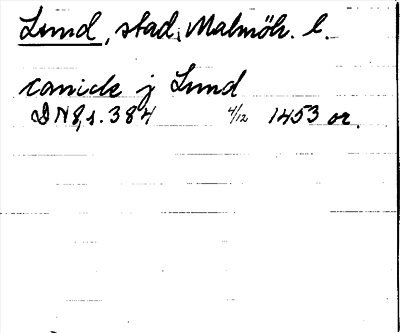 Lund, stad, Malmöh. l.
canick j Lund
DN 8, s. 384 4/12 1453 or.